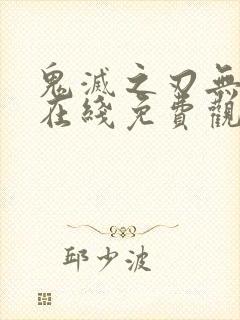 鬼滅之刃無
在綫免費觀
邱少波